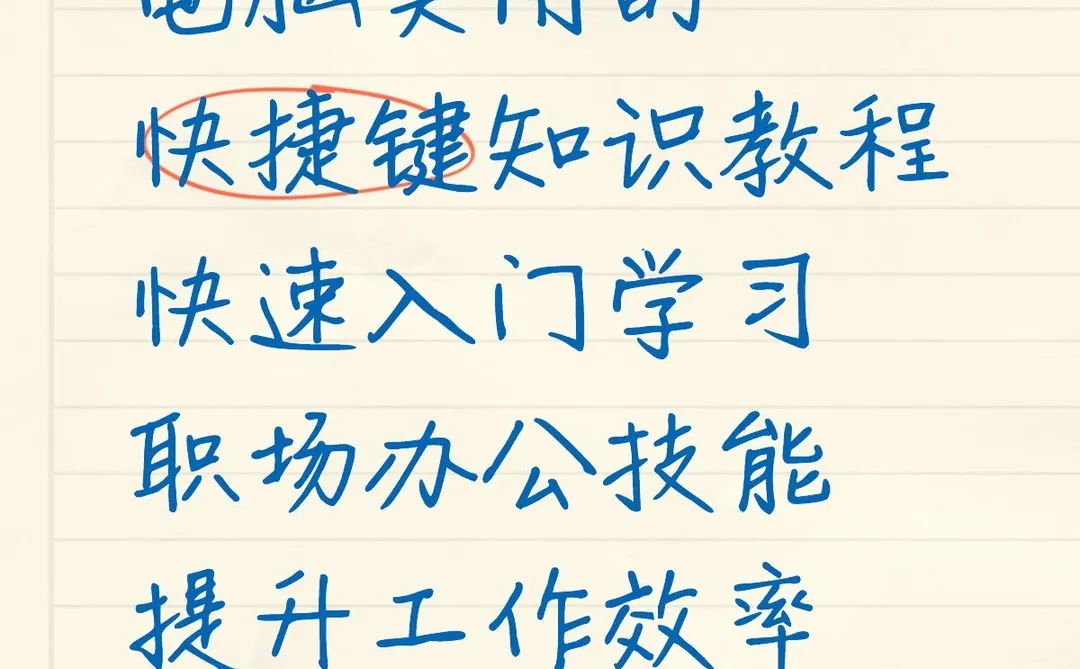 电脑实用的
快捷键知识教程
快速入门学习
职场办公技能
提升工作效率